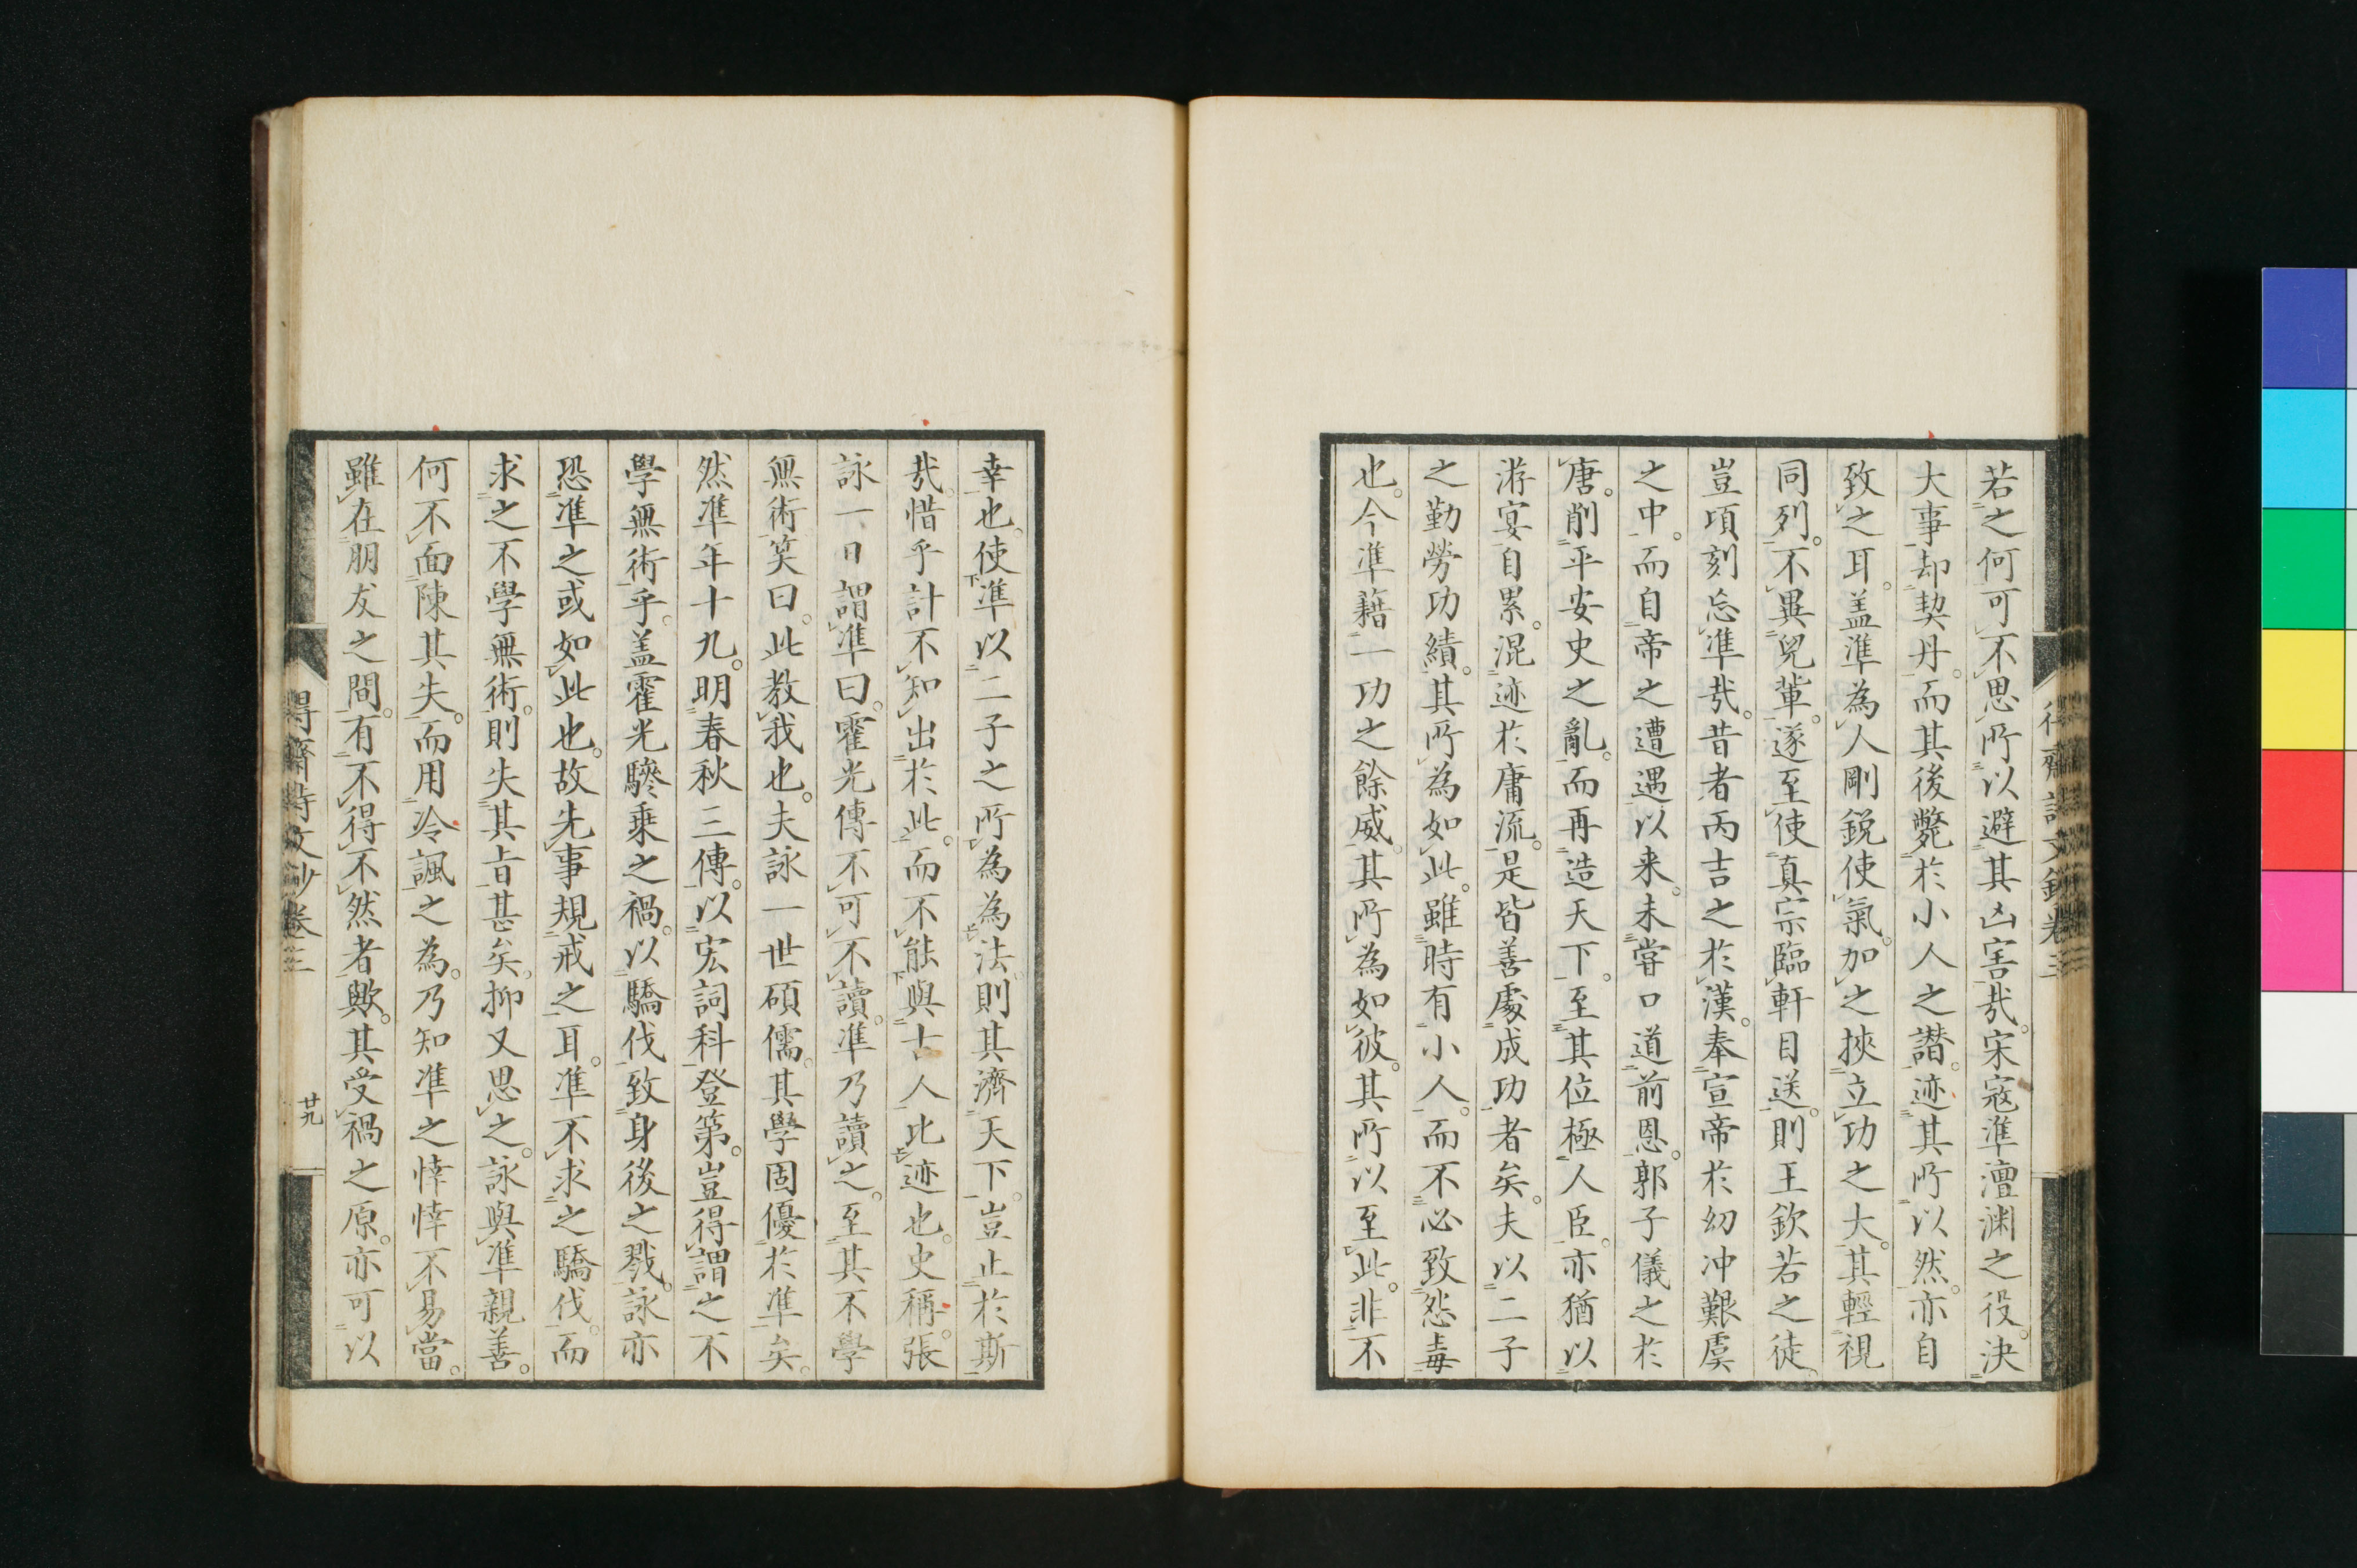 若之何可不思所以避其凶害哉。宋寇準澶渊之役。決
大事却契丹。而其後斃於小人之譖。迹其所以然。亦自
致之耳。盖準為人剛銳使氣。加之挾立功之大。其輕視
同列。不異兒輩。遂至使真宗臨軒目送。則王欽若之徒。
豈頃刻忘準哉。昔者丙吉之於漢。奉宣帝於幼冲艱虞
之中。而自帝之遭遇以来。未嘗口道前恩。郭子儀之於
唐。削平安史之亂。而再造天下。至其位極人臣。亦猶以
游宴自累。混迹於庸流。是皆善處成功者矣。夫以二子
之勤勞功績。其所為如此。雖時有小人。而不必致怨毒
也。今準藉一功之餘威。其所為如彼。其所以至此。非不
得齋詩文鈔卷三
幸也。使準以二子之所為為法。則其濟天下。豈止於斯
哉。惜乎計不知出於此。而不能與古人比迹也。史稱。張
詠一日謂準曰。霍光傳不可不讀。準乃讀之。至其不學
無術。笑曰。此教我也。夫詠一世碩儒。其學固優於準矣。
然準年十九。明春秋三傳。以宏詞科登第。豈得謂之不
學無術乎。盖霍光驂乗之禍。以驕伐致身後之戮。詠亦
恐準之或如此也。故先事規戒之耳。準不求之驕伐。而
求之不學無術。則失其旨甚矣。抑又思之。詠與準親善。
何不面陳其失。而用冷諷之為。乃知準之悻悻不易當。
雖在朋友之間。有不得不然者歟。其受禍之原。亦可以
得齋詩文鈔卷三
廿九